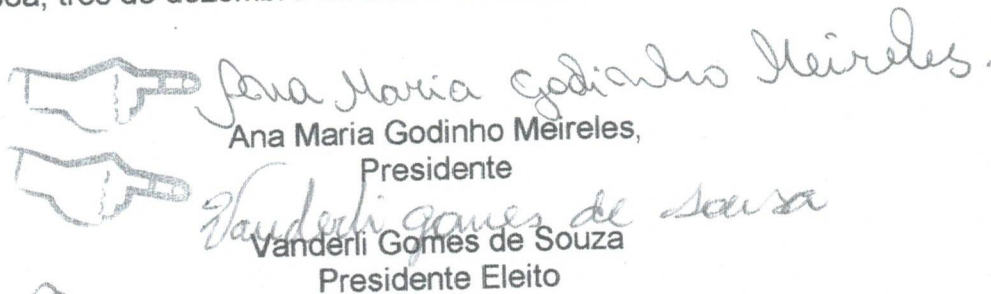 três de dezembro
Ana Maria Godinho Meireles.
Ana Maria Godinho Meireles,
Presidente
Vanderli gomes de Sousa
Vanderli Gomes de Souza
Presidente Eleito